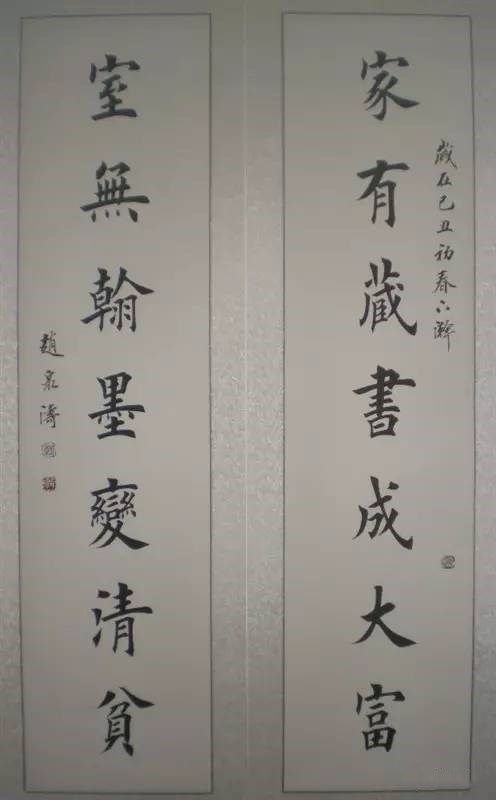 歲在己丑初春下澣
家有藏書成大富
室無翰墨變清貧
趙泉濤